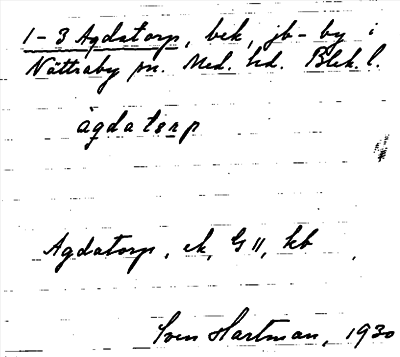 1-3 Agdatorp, bek, jb-by i
Nättraby sn. Med. hd. Blek. l.
ägdatorp
Agdatorp, ek, G 11, kb
Sven Hartman, 1930